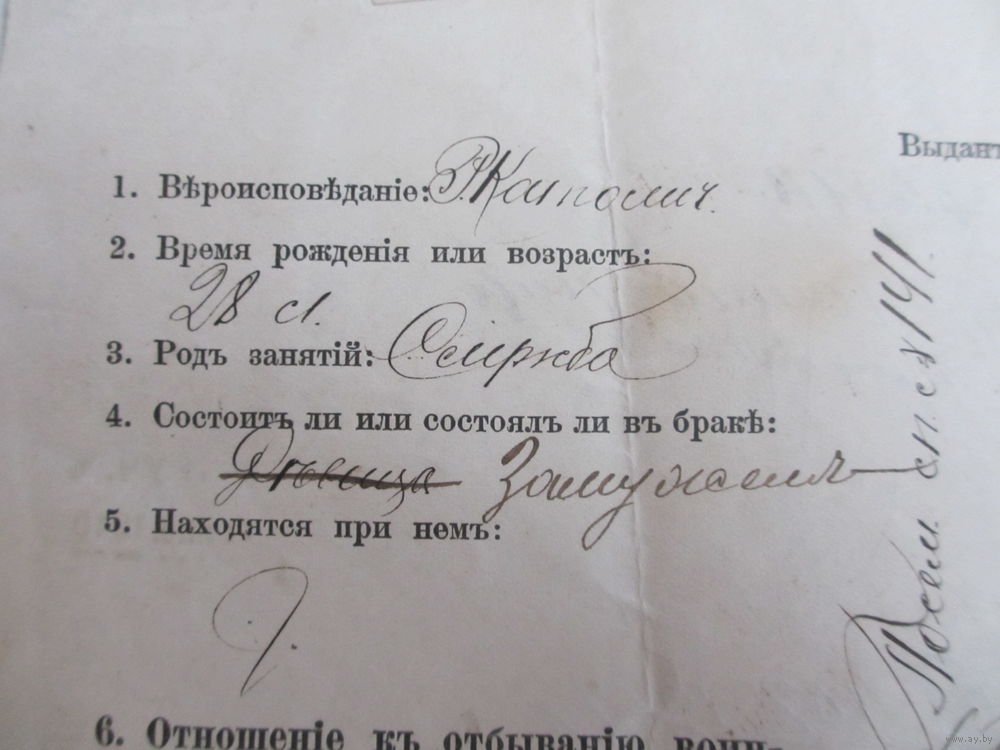 Выдант
1. Вѣроисповѣданіе: Р. Католич.
2. Время рожденія или возрастъ:
28 л.
3. Родъ занятій: Служба
4. Состоитъ ли или состоялъ ли въ бракѣ:
Дѣвица Замужемъ
5. Находятся при немъ:
6. Отношеніе къ отбыванію воин-
Посем. сп. с. № 141.
www.ay.by